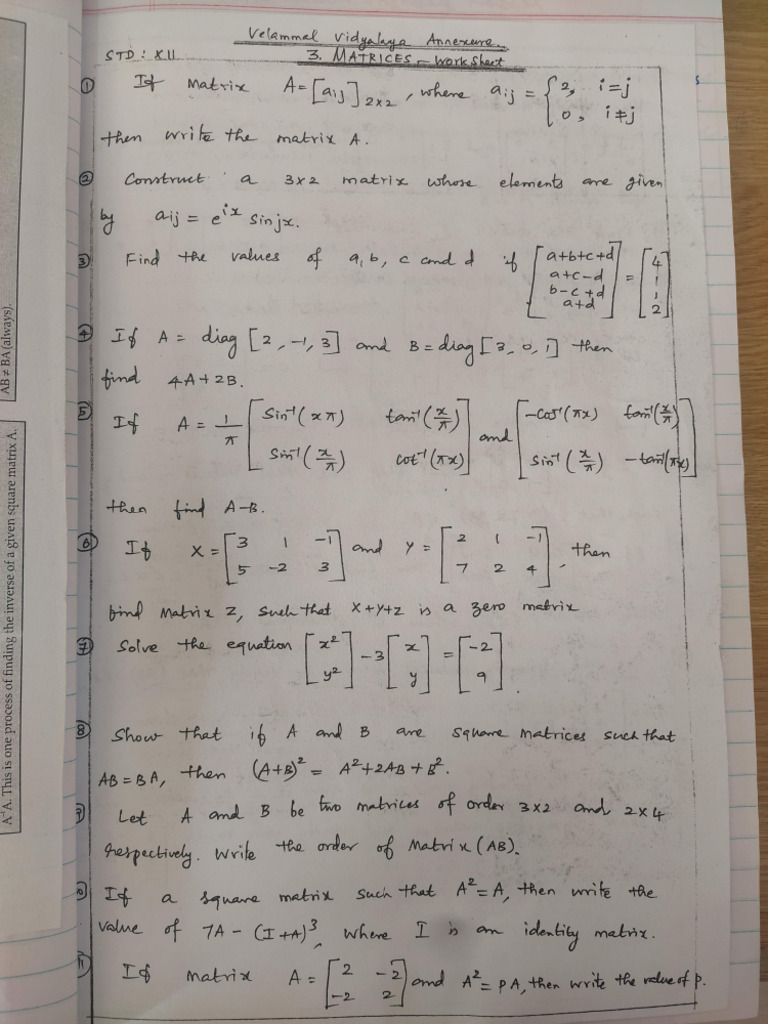 Velammal Vidyalaya Annexure
STD : XII 3. MATRICES - Worksheet
① If Matrix A = [aij]2×2 , where aij = { 2, i=j
0, i≠j
then write the matrix A.
② Construct a 3×2 matrix whose elements are given
by aij = e^{ix} sin jx.
③ Find the values of a, b, c and d if [a+b+c+d; a+c-d; b-c+d; a+d] = [4; 1; 1; 2]
④ If A = diag [2, -1, 3] and B = diag [3, 0, 1] then
find 4A+2B.
⑤ If A = 1/π [sin⁻¹(xπ) tan⁻¹(x/π); sin⁻¹(x/π) cot⁻¹(πx)] and [-cos⁻¹(πx) tan⁻¹(x/π); sin⁻¹(x/π) -tan⁻¹(πx)]
then find A-B.
⑥ If X = [3 1 -1; 5 -2 3] and Y = [2 1 -1; 7 2 4], then
find Matrix Z, such that X+Y+Z is a zero matrix
⑦ Solve the equation [x²; y²] - 3 [x; y] = [-2; 9].
⑧ Show that if A and B are square matrices such that
AB = BA, then (A+B)² = A²+2AB+B².
⑨ Let A and B be two matrices of order 3×2 and 2×4
respectively. Write the order of Matrix (AB).
⑩ If a square matrix such that A² = A, then write the
value of 7A - (I+A)³, where I is an identity matrix.
⑪ If matrix A = [2 -2; -2 2] and A² = PA, then write the value of p.
AB ≠ BA (always).
A⁻¹A. This is one process of finding the inverse of a given square matrix A.